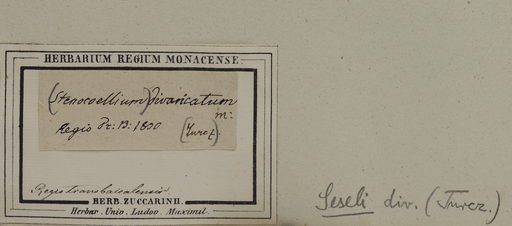 HERBARIUM REGIUM MONACENSE.
(Stenocoellium) divaricatum
m:
Regio 1830 (Turcz.)
Regio transbaicalensis.
HERB. ZUCCARINII.
Herbar. Univ. Ludov. Maximil.
Seseli div. (Turcz.)